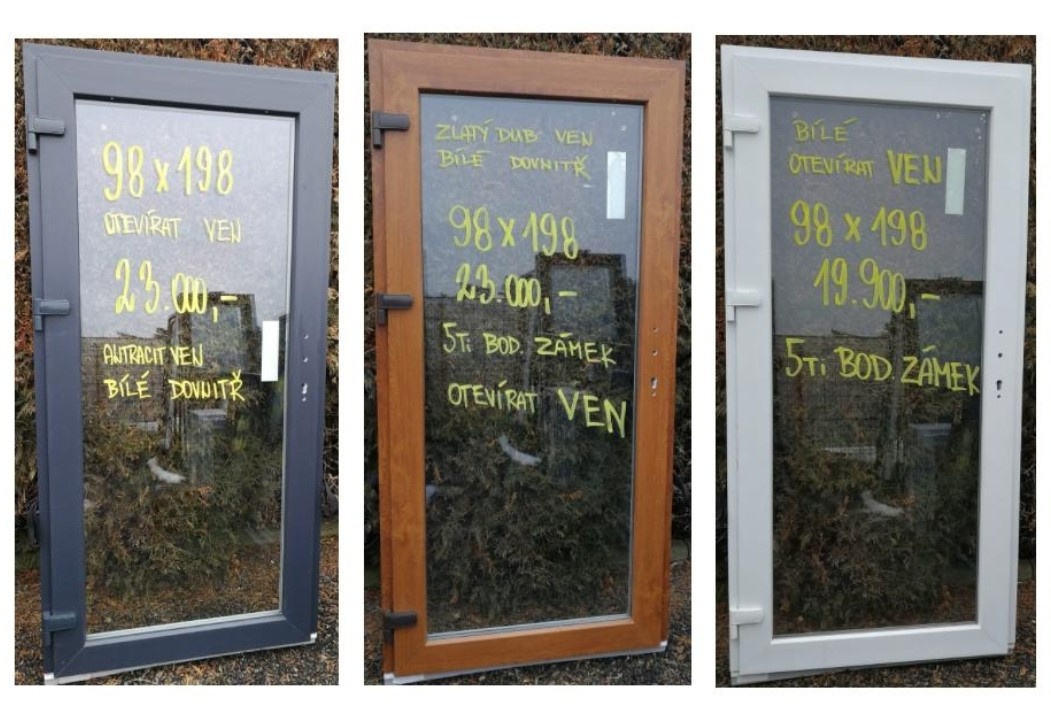 98 x 198
OTEVÍRAT VEN
23.000,-
ANTRACIT VEN
BÍLÉ DOVNITŘ
ZLATÝ DUB VEN
BÍLÉ DOVNITŘ
98 x 198
23.000,-
5Ti BOD. ZÁMEK
OTEVÍRAT VEN
BÍLÉ
OTEVÍRAT VEN
98 x 198
19.900,-
5Ti BOD. ZÁMEK